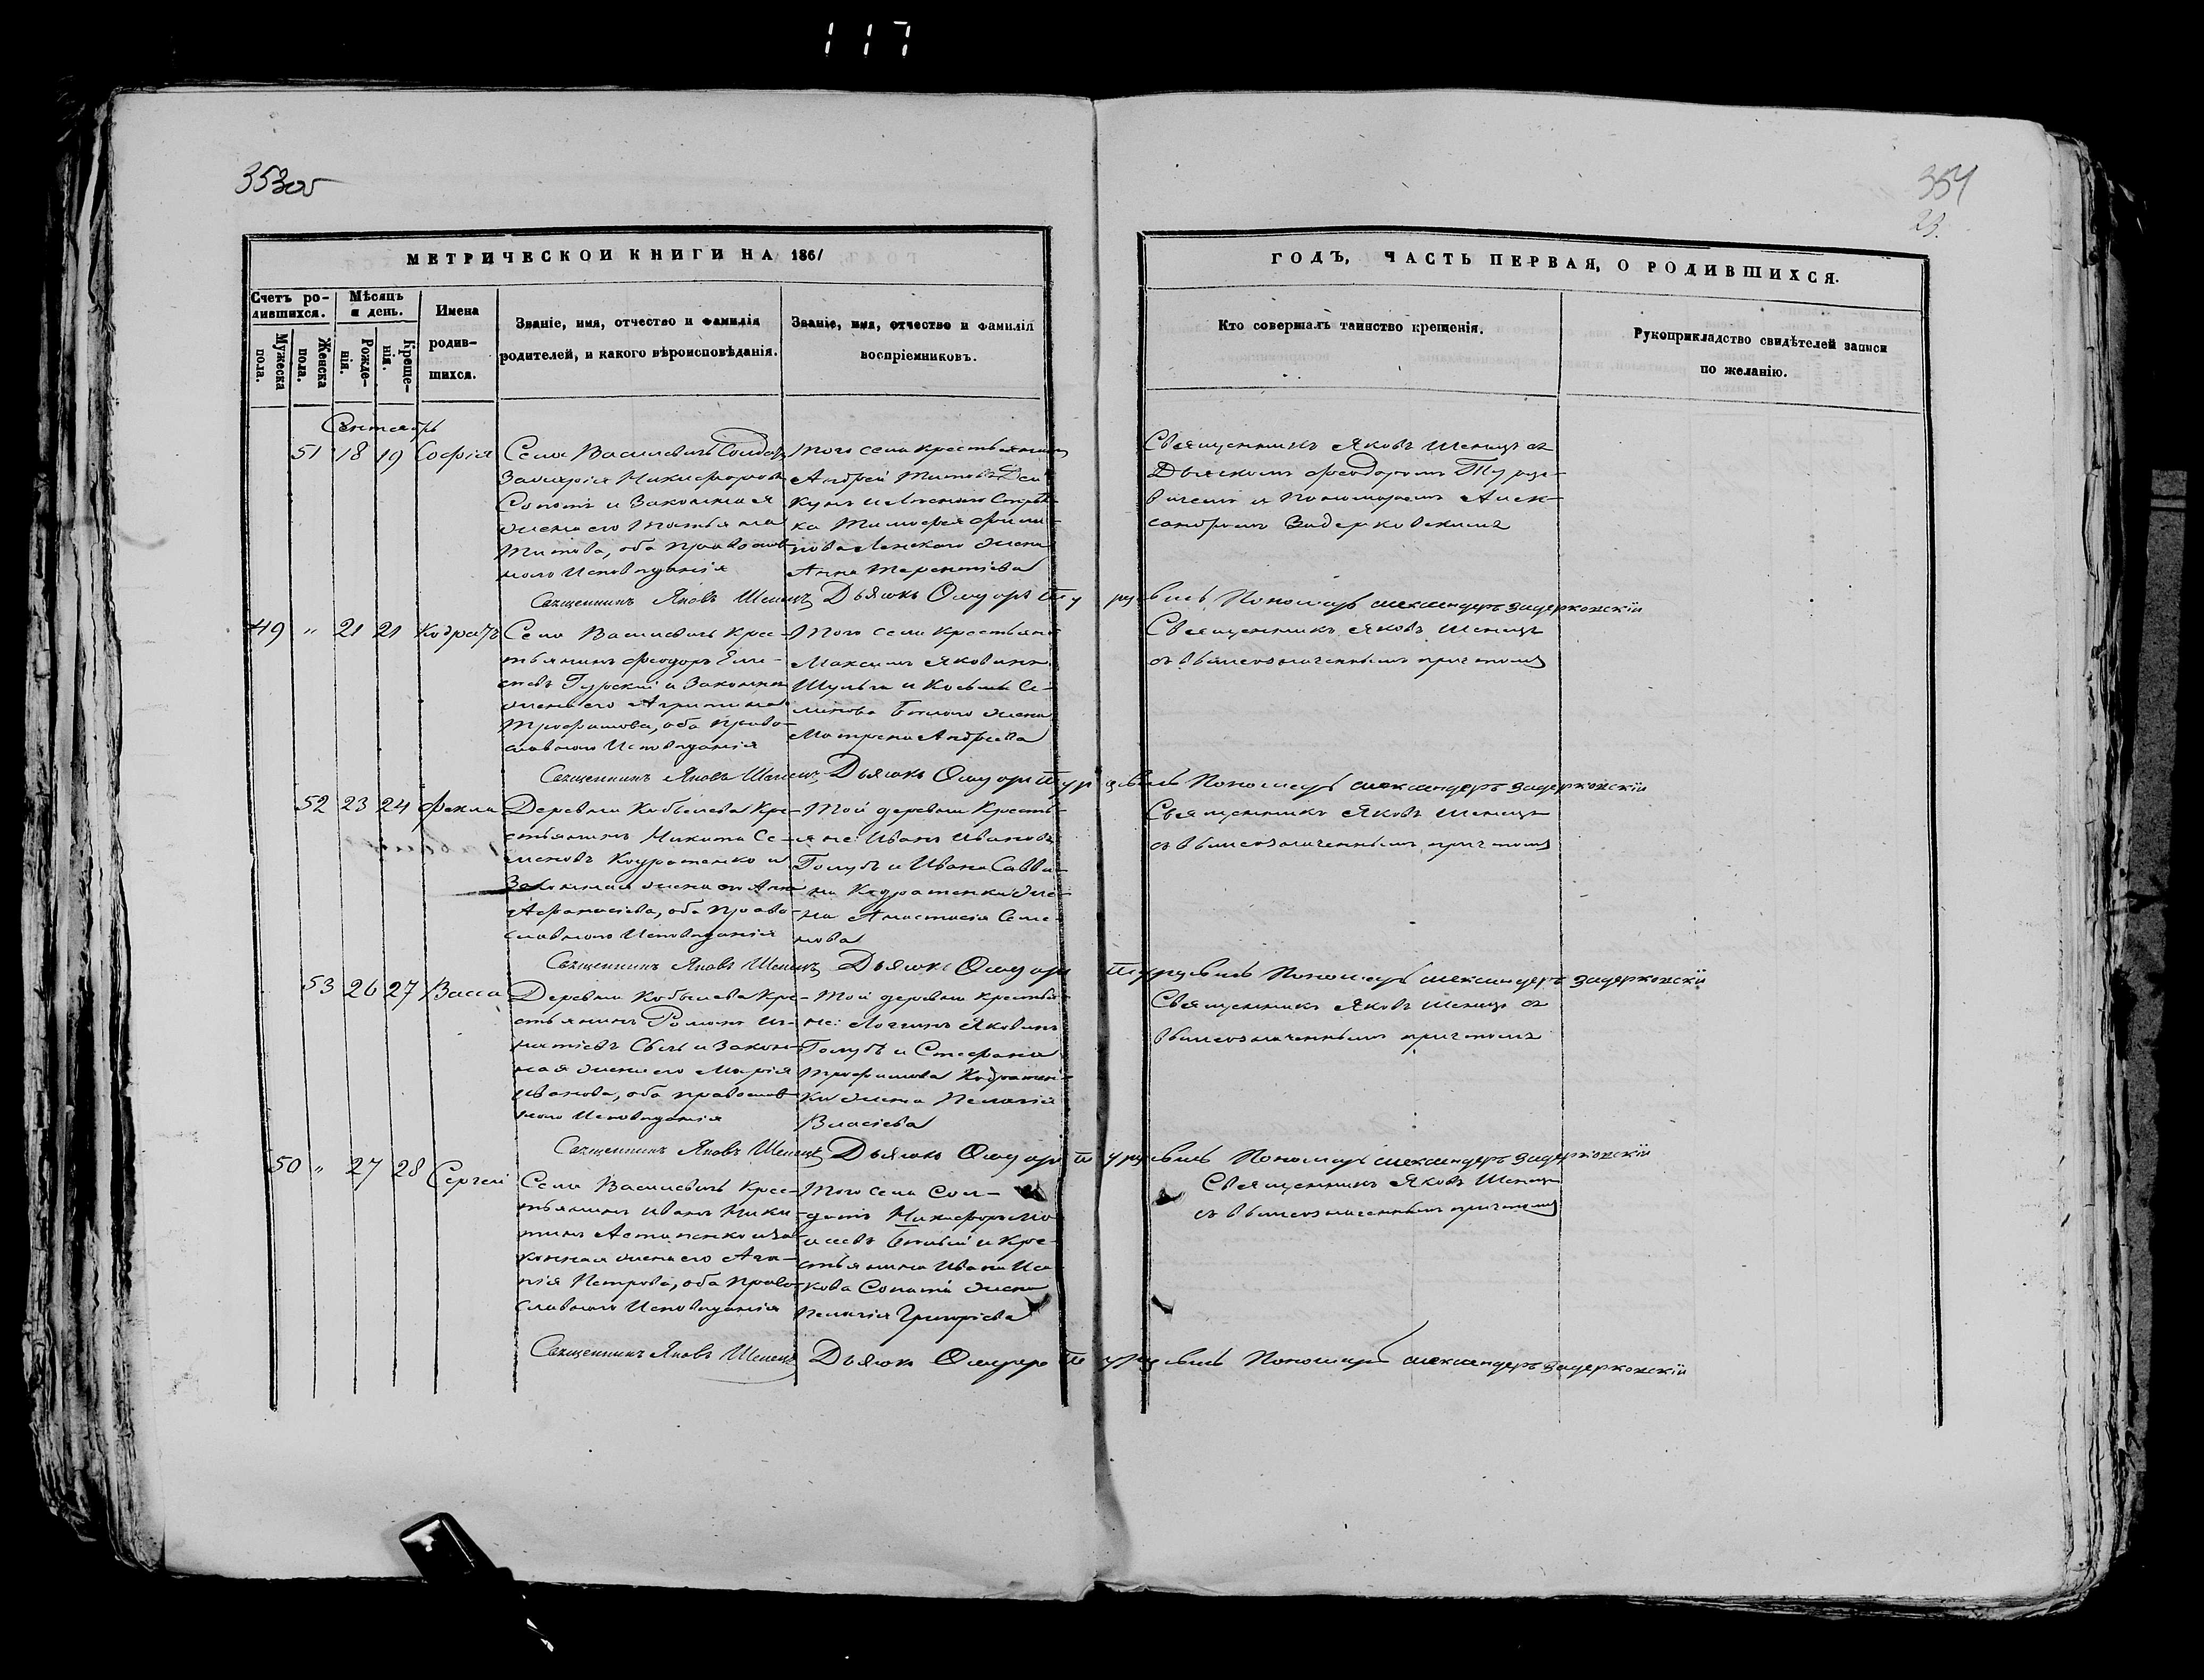 117
353об
354
23.
МЕТРИЧЕСКОЙ КНИГИ НА 1861
ГОДЪ, ЧАСТЬ ПЕРВАЯ, О РОДИВШИХСЯ.
Счетъ родившихся.
Мужеска пола.
Женска пола.
Мѣсяцъ и день.
Рожденія.
Крещенія.
Имена родившихся.
Званіе, имя, отчество и фамилія
родителей, и какого вѣроисповѣданія.
Званіе, имя, отчество и фамилія
воспріемниковъ.
Кто совершалъ таинство крещенія.
Рукоприкладство свидѣтелей записи
по желанію.
Сентябрь
51 18 19 Софія
Села Василевичъ Солдатъ
Захарія Никифоровъ
Сопотъ и Законная
жена его Татьяна
Титова, оба православ-
ного Исповѣданія
того села крестьянинъ
Андрей Титовъ
Тимофея
жена
Анна Терентіева
Священникъ Яковъ Шенецъ съ
Дьячкомъ Феодоромъ Туру-
вичемъ и Пономаремъ Алек-
сандромъ Задерковскимъ
Священникъ Яковъ Шенецъ Дьячокъ Пономарь Александеръ Задерковскій
49 " 21 21 Кодратъ
Села Василевичъ Крес-
тьянинъ Феодоръ
Гурскій и Законная
жена его Агрипина
Трофимова, оба право-
славного Исповѣданія
Того села крестьяне
Максимъ Яковинъ
Шульга и Косьмы Се-
минова Белого жена
Матрена Андреева
Священникъ Яковъ Шенецъ
съ вышеозначеннымъ причтомъ
Священникъ Яковъ Шенецъ Дьячокъ Пономарь Александеръ Задерковскій
52 23 24 Фекла
Деревни Кобылева Кре-
стьянинъ Никита Се-
меновъ Кодратенко и
Законная жена его Анна
Афанасіева, оба право-
славного Исповѣданія
Той деревни Кресть-
яне: Иванъ Ивановъ
Голубъ и Ивана Савви-
на Кодратенки же-
на Анастасія Семе-
нова
Священникъ Яковъ Шенецъ
съ вышеозначеннымъ причтомъ
Священникъ Яковъ Шенецъ Дьячокъ Пономарь Александеръ Задерковскій
53 26 27 Васса
Деревни Кобылева Кре-
стьянинъ Романъ Иг-
натіевъ и Закон-
ная жена его Марія
Иванова, оба православ-
ного Исповѣданія
Той деревни крестья-
не: Логинъ Яковинъ
Голубъ и Стефана
Трофимова Кодратен-
ки жена Пелагія
Власіева
Священникъ Яковъ Шенецъ съ
вышеозначеннымъ причтомъ
Священникъ Яковъ Шенецъ Дьячокъ Пономарь Александеръ Задерковскій
50 " 27 28 Сергей
Села Василевичъ Крес-
тьянинъ Иванъ Ники-
тинъ Астапенко и За-
конная жена его Ага-
пія Петрова, оба право-
славного Исповѣданія
Того села Сол-
датъ Никифоръ Мо-
исеевъ Белый и Кре-
стьянина Ивана Иса-
кова Сопота жена
Пелагія Григоріева
Священникъ Яковъ Шенецъ
съ вышеозначеннымъ причтомъ
Священникъ Яковъ Шенецъ Дьячокъ Пономарь Александеръ Задерковскій